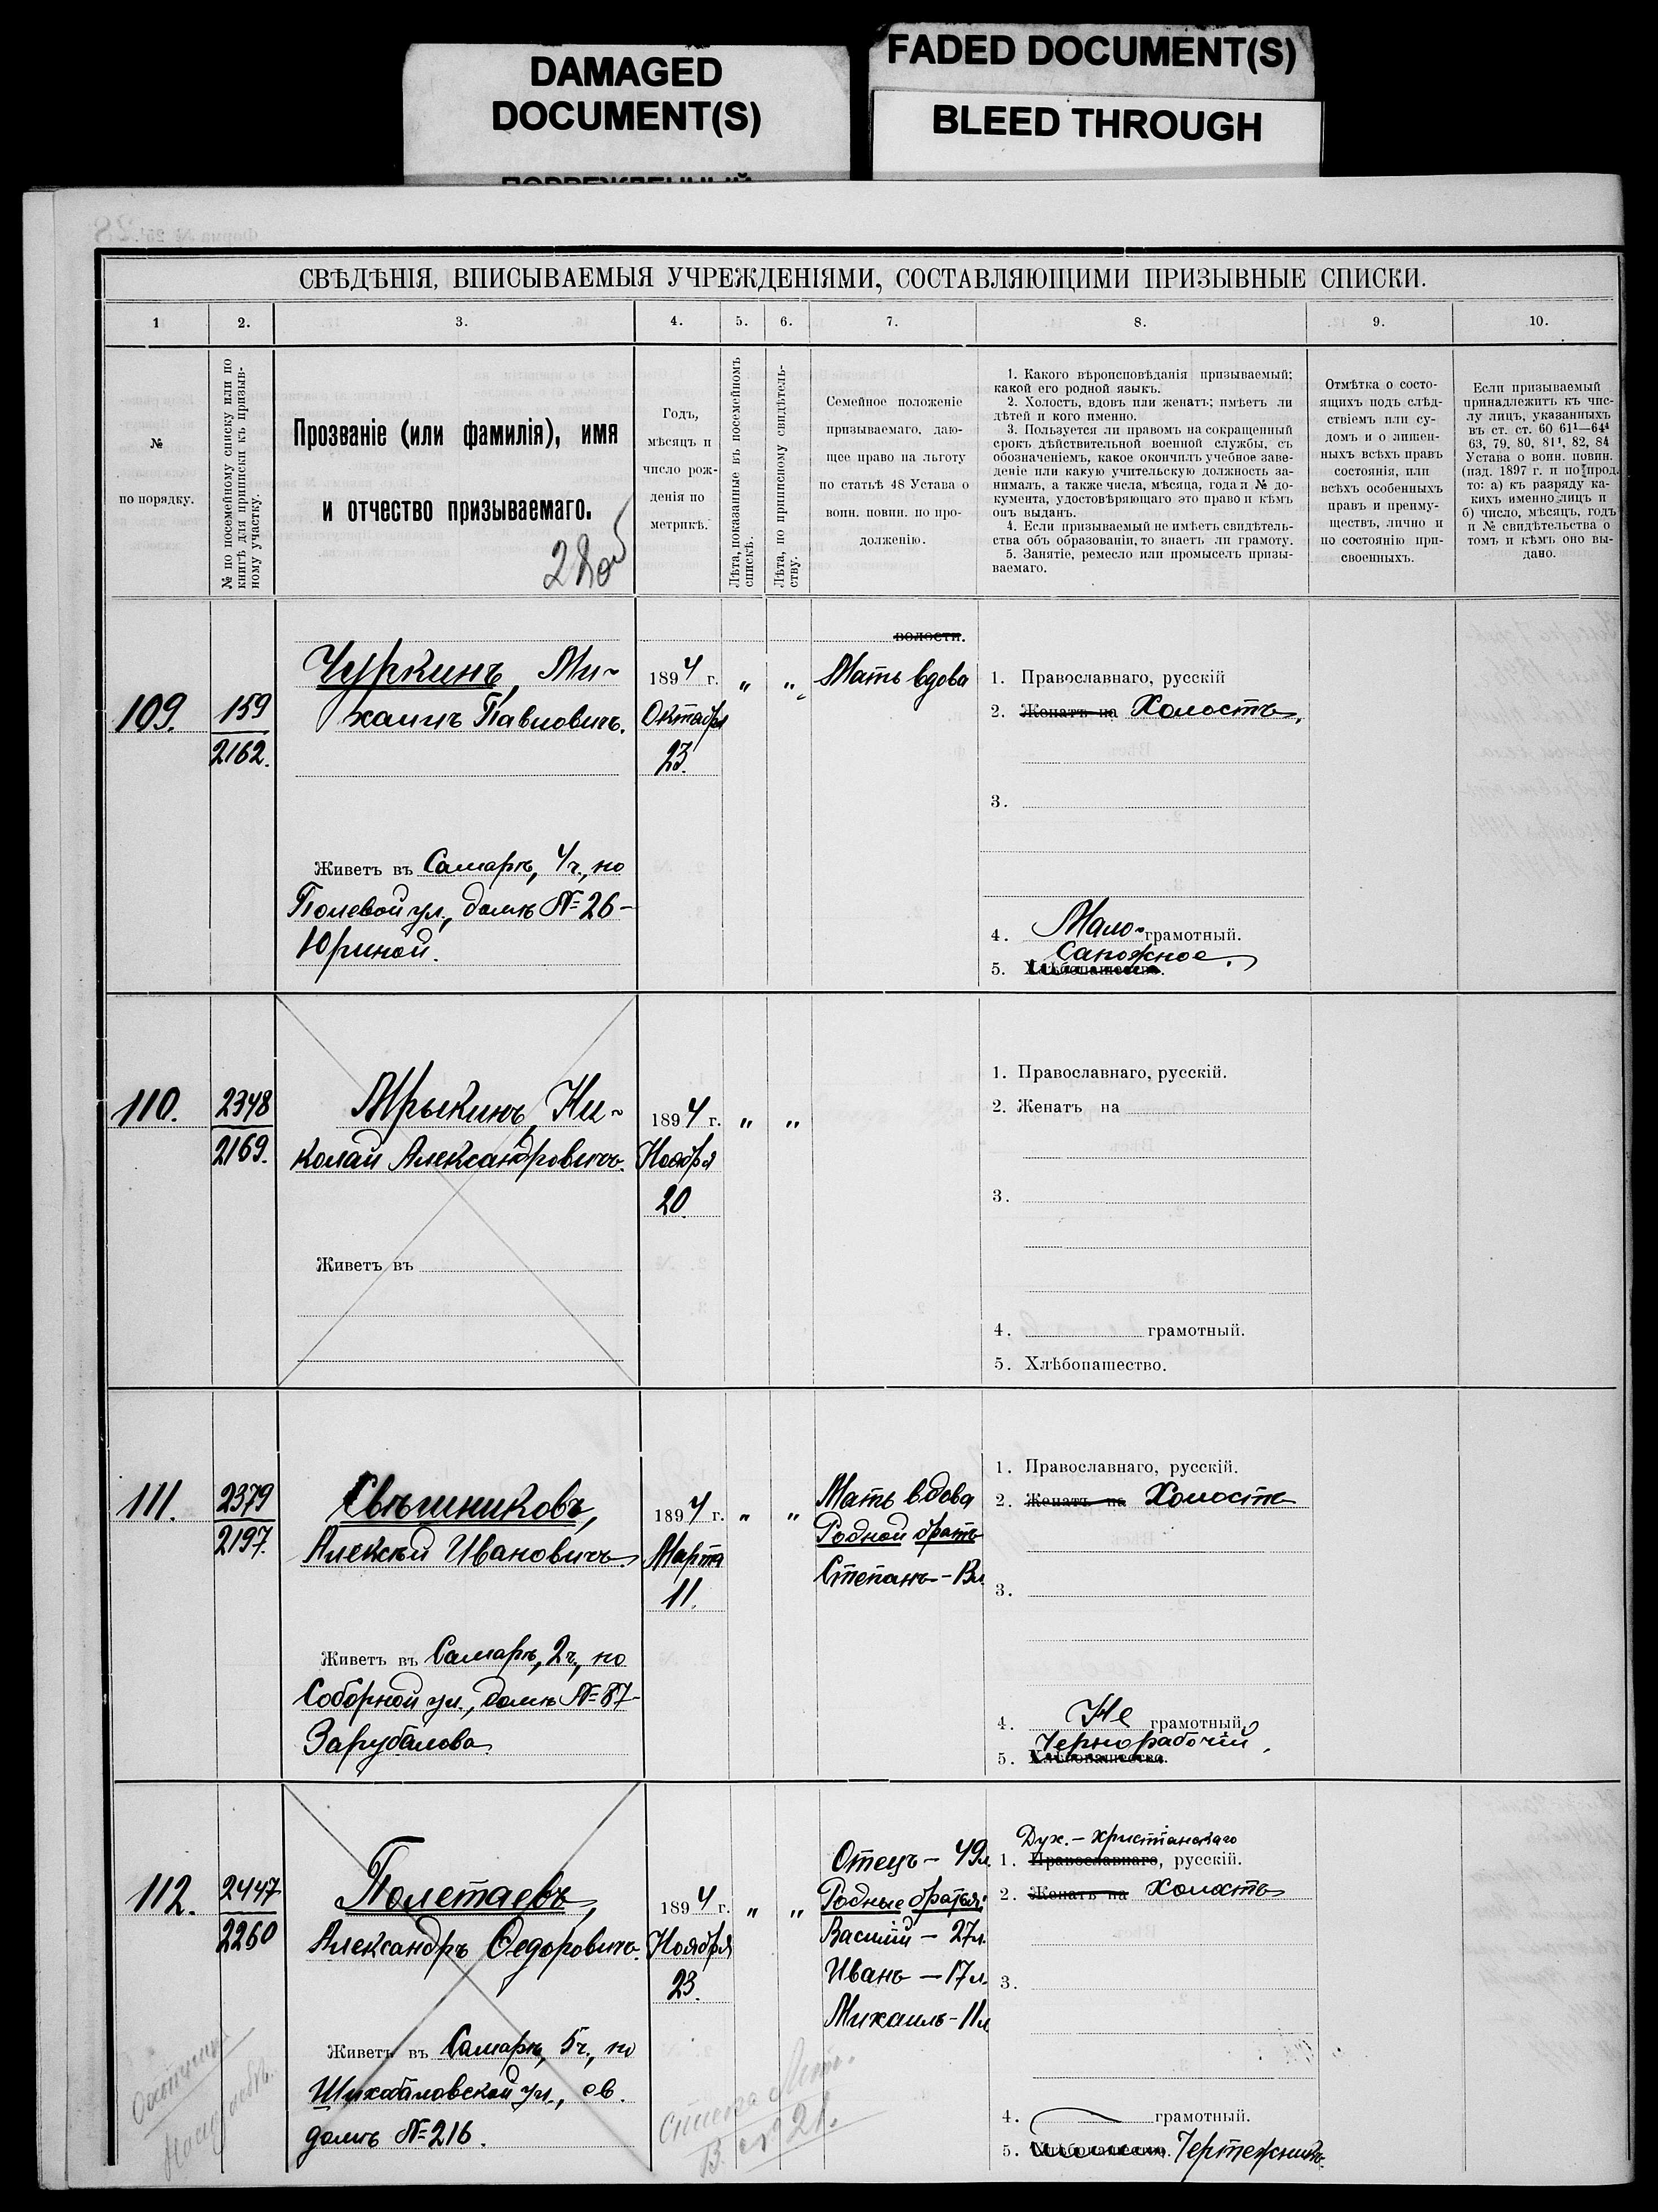 DAMAGED
DOCUMENT(S)
FADED DOCUMENT(S)
BLEED THROUGH
СВѢДѢНІЯ, ВПИСЫВАЕМЫЯ УЧРЕЖДЕНІЯМИ, СОСТАВЛЯЮЩИМИ ПРИЗЫВНЫЕ СПИСКИ.
1 2. 3. 4. 5. 6. 7. 8. 9. 10.
№
по порядку.
№ по посемейному списку или по
книгѣ для приписки къ призыв-
ному участку.
Прозваніе (или фамилія), имя
и отчество призываемаго.
Годъ,
мѣсяцъ и
число рож-
денія по
метрикѣ.
Лѣта, показанные въ посемейномъ
спискѣ.
Лѣта, по приписному свидѣтель-
ству.
Семейное положеніе
призываемаго, даю-
щее право на льготу
по статьѣ 48 Устава о
воин. повин. по про-
долженію.
1. Какого вѣроисповѣданія призываемый;
какой его родной языкъ.
2. Холостъ, вдовъ или женатъ; имѣетъ ли
дѣтей и кого именно.
3. Пользуется ли правомъ на сокращенный
срокъ дѣйствительной военной службы, съ
обозначеніемъ, какое окончилъ учебное заве-
деніе или какую учительскую должность за-
нималъ, а также числа, мѣсяца, года и № до-
кумента, удостовѣряющаго это право и кѣмъ
онъ выданъ.
4. Если призываемый не имѣетъ свидѣтель-
ства объ образованіи, то знаетъ ли грамоту.
5. Занятіе, ремесло или промыселъ призы-
ваемаго.
Отмѣтка о состо-
ящихъ подъ слѣд-
ствіемъ или су-
домъ и о лишен-
ныхъ всѣхъ правъ
состоянія, или
всѣхъ особенныхъ
правъ и преиму-
ществъ, лично и
по состоянію при-
своенныхъ.
Если призываемый
принадлежитъ къ чис-
лу лицъ, указанныхъ
въ ст. ст. 60 61¹—64⁴
63, 79, 80, 81¹, 82, 84
Устава о воин. повин.
(изд. 1897 г. и по прод.
то: а) къ разряду ка-
кихъ именно лицъ и
б) число, мѣсяцъ, годъ
и № свидѣтельства о
томъ и кѣмъ оно вы-
дано.
109.
159
2162.
Чуркинъ, Ми-
хаилъ Павловичъ.
Живетъ въ Самарѣ, 4 ч., по
Полевой ул., домъ № 26-
Юриной.
1894 г.
Октября
23.
" "
волости.
Мать вдова
1. Православнаго, русскій
2. Женатъ на Холостъ.
3.
4. Мало-грамотный.
Сапожное.
5. Хлѣбопашество.
110.
2348
2169.
Мрыкинъ, Ни-
колай Александровичъ.
Живетъ въ
1894 г.
Ноября
20.
" "
1. Православнаго, русскій.
2. Женатъ на
3.
4. грамотный.
5. Хлѣбопашество.
111.
2379
2197.
Свѣшниковъ,
Алексѣй Ивановичъ
Живетъ въ Самарѣ, 2 ч., по
Соборной ул., домъ № 87-
Зарубалова
1894 г.
Марта
11.
" "
Мать вдова
Родной братъ
Степанъ - 13 л.
1. Православнаго, русскій.
2. Женатъ на Холостъ
3.
4. Не грамотный.
Чернорабочій.
5. Хлѣбопашество.
112.
2447
2260
Полетаевъ,
Александръ Ѳедоровичъ.
Живетъ въ Самарѣ, 5 ч., по
Шихобаловской ул., св.
домъ № 216.
1894 г.
Ноября
23.
" "
Отецъ - 49 л.
Родные братья:
Василій - 27 л.
Иванъ - 17 л.
Михаилъ - 11 л.
Дух. - христіанскаго
1. Православнаго, русскій.
2. Женатъ на Холостъ
3.
4. грамотный.
5. Хлѣбопашество. Чертежникъ.